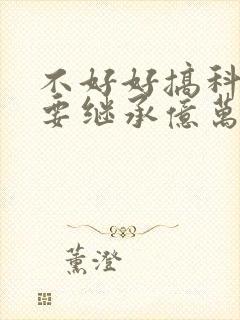 不好好搞科
要继承億萬
薰澄